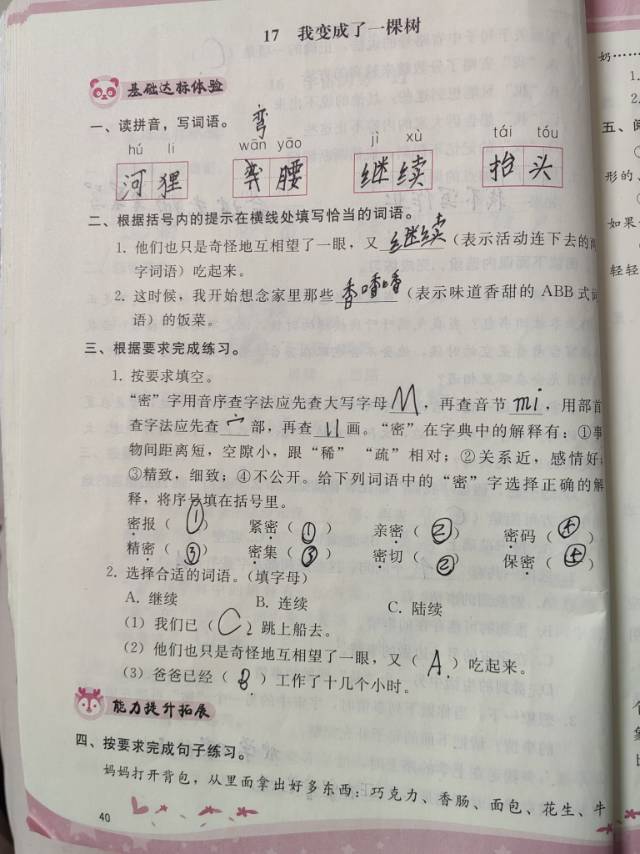 17 我变成了一棵树
基础达标体验
一、读拼音，写词语。 弯
hú li wān yāo jì xù tái tóu
河狸 腰 继续 抬头
二、根据括号内的提示在横线处填写恰当的词语。
1. 他们也只是奇怪地互相望了一眼，又 继续 （表示活动连下去的
字词语）吃起来。
2. 这时候，我开始想念家里那些 香喷喷 （表示味道香甜的 ABB 式词
语）的饭菜。
三、根据要求完成练习。
1. 按要求填空。
“密”字用音序查字法应先查大写字母 M ，再查音节 mi ，用部首
查字法应先查 宀 部，再查 11 画。“密”在字典中的解释有：①事
物间距离短，空隙小，跟“稀”“疏”相对；②关系近，感情好；
③精致，细致；④不公开。给下列词语中的“密”字选择正确的解
释，将序号填在括号里。
密报（ ① ） 紧密（ ① ） 亲密（ ② ） 密码（ ④ ）
精密（ ③ ） 密集（ ③ ） 密切（ ② ） 保密（ ④ ）
2. 选择合适的词语。（填字母）
A. 继续 B. 连续 C. 陆续
（1）我们已（ C ）跳上船去。
（2）他们也只是奇怪地互相望了一眼，又（ A ）吃起来。
（3）爸爸已经（ B ）工作了十几个小时。
能力提升拓展
四、按要求完成句子练习。
妈妈打开背包，从里面拿出好多东西：巧克力、香肠、面包、花生、牛
40
奶……
1.
2.
五、
形的、
如果
轻轻